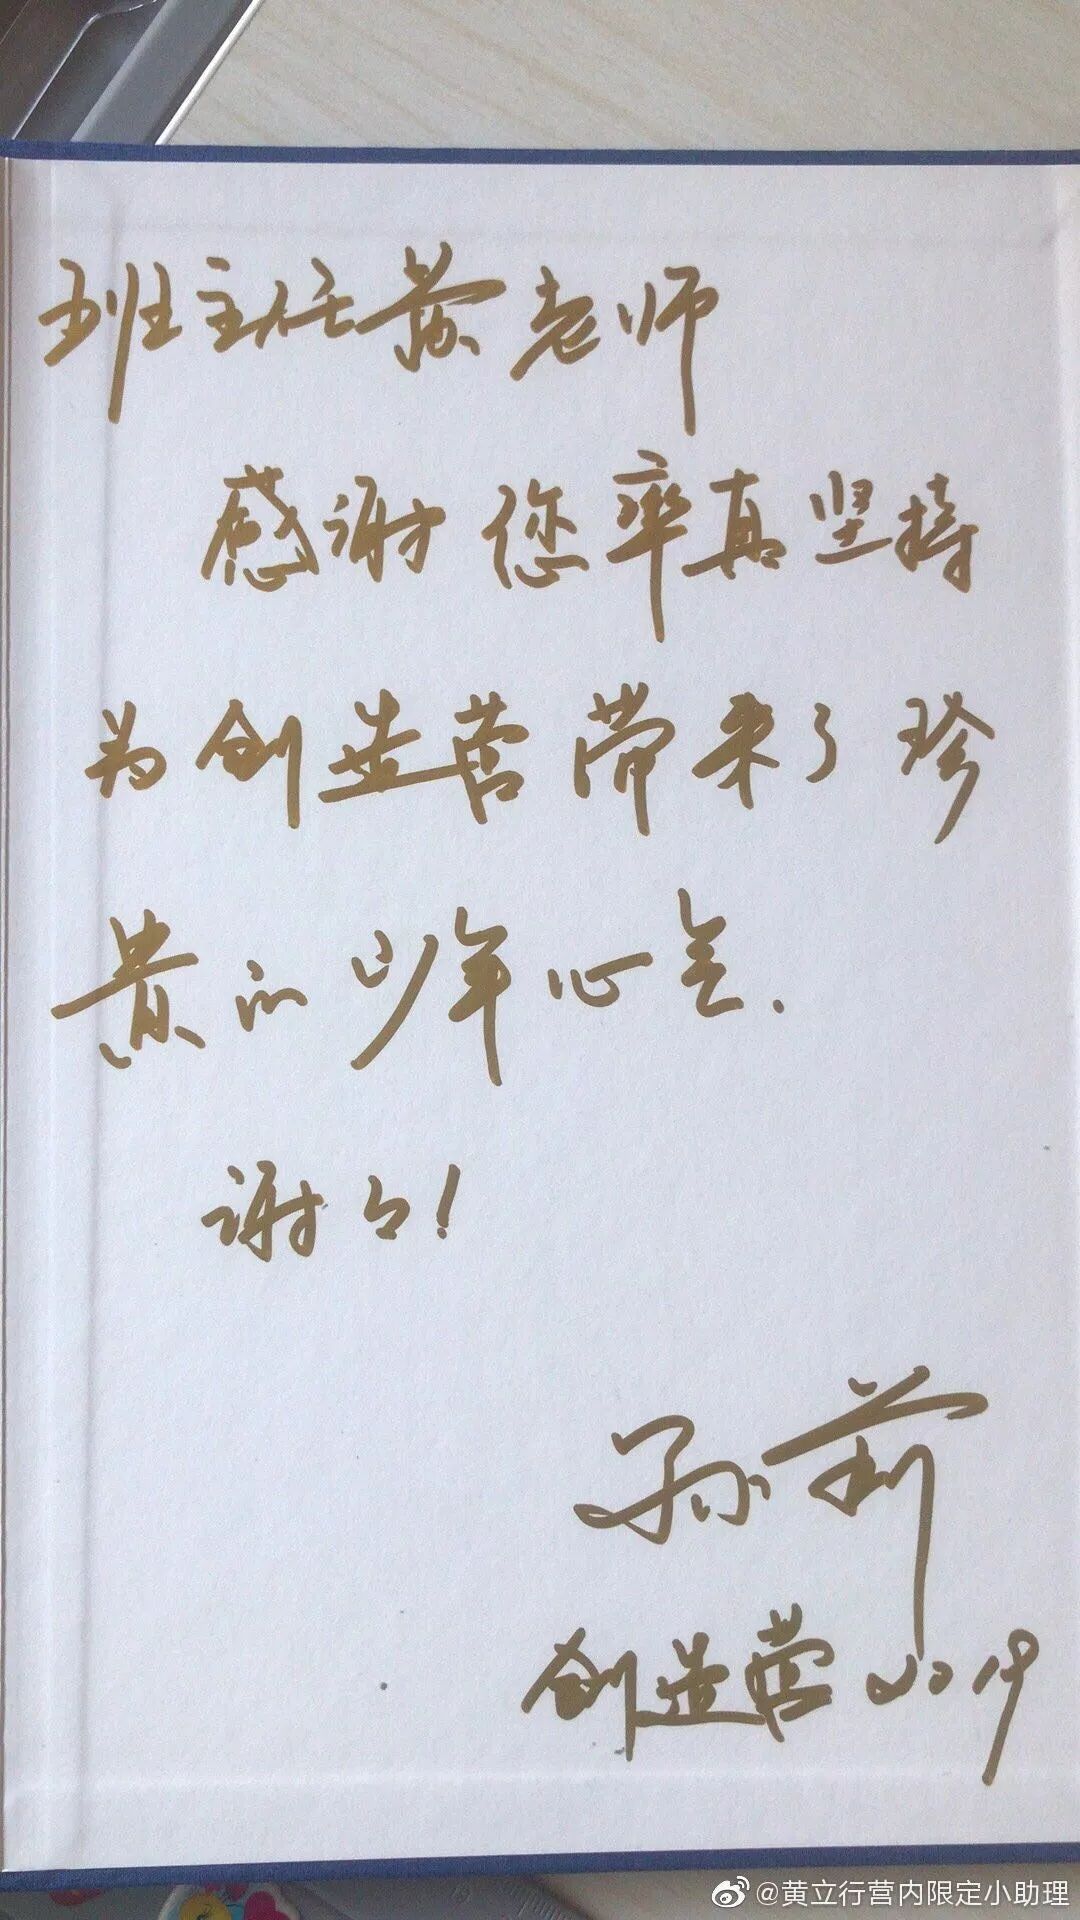 班主任黄老师
感谢您率真坚持
为创造营带来了珍
贵的少年心气.
谢谢!
孙莉
创造营2019
@黄立行营内限定小助理